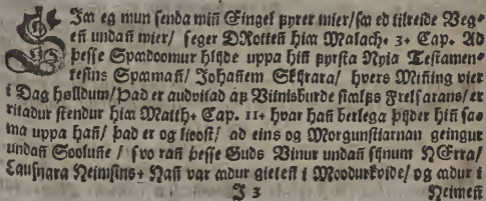 SJaa eg mun senda miñ Eingel fyrer mier/ sa ed tilreide Veg-
eñ undañ mier/ seger DRotteñ hia Malach. 3. Cap. Ad
þesse Spædoomur hlyde uppa hiñ fyrsta Nyia Testamen-
tesins Spæmañ/ Johañem Skyrara/ hvers Miñing vier
i Dag høldum/ Þad er audvitad af Vitnisburde sialfs Frelsarans/ er
ritadur stendur hia Matth. Cap. 11. hvar hañ berlega þyder hiñ sa-
ma uppa hañ/ þad er og lioost/ ad eins og Morgunstiarnan geingur
undañ Sooluñe/ svo rañ þesse Guds Vinur undañ synum HErra/
Lausnara Heimsins. Hañ var ædur gieteñ i Moodurkvide/ og ædur i
J 3 Heimeñ